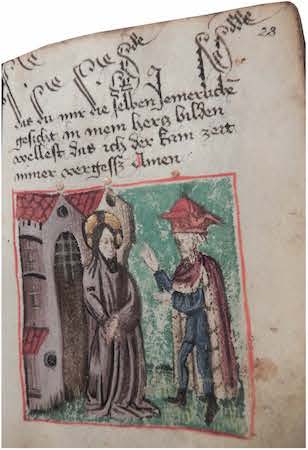 28
das du mir die selben Jemerliche
gesicht in mein hertz bilden
wellest das ich der kain zeit
nimer vergess Amen